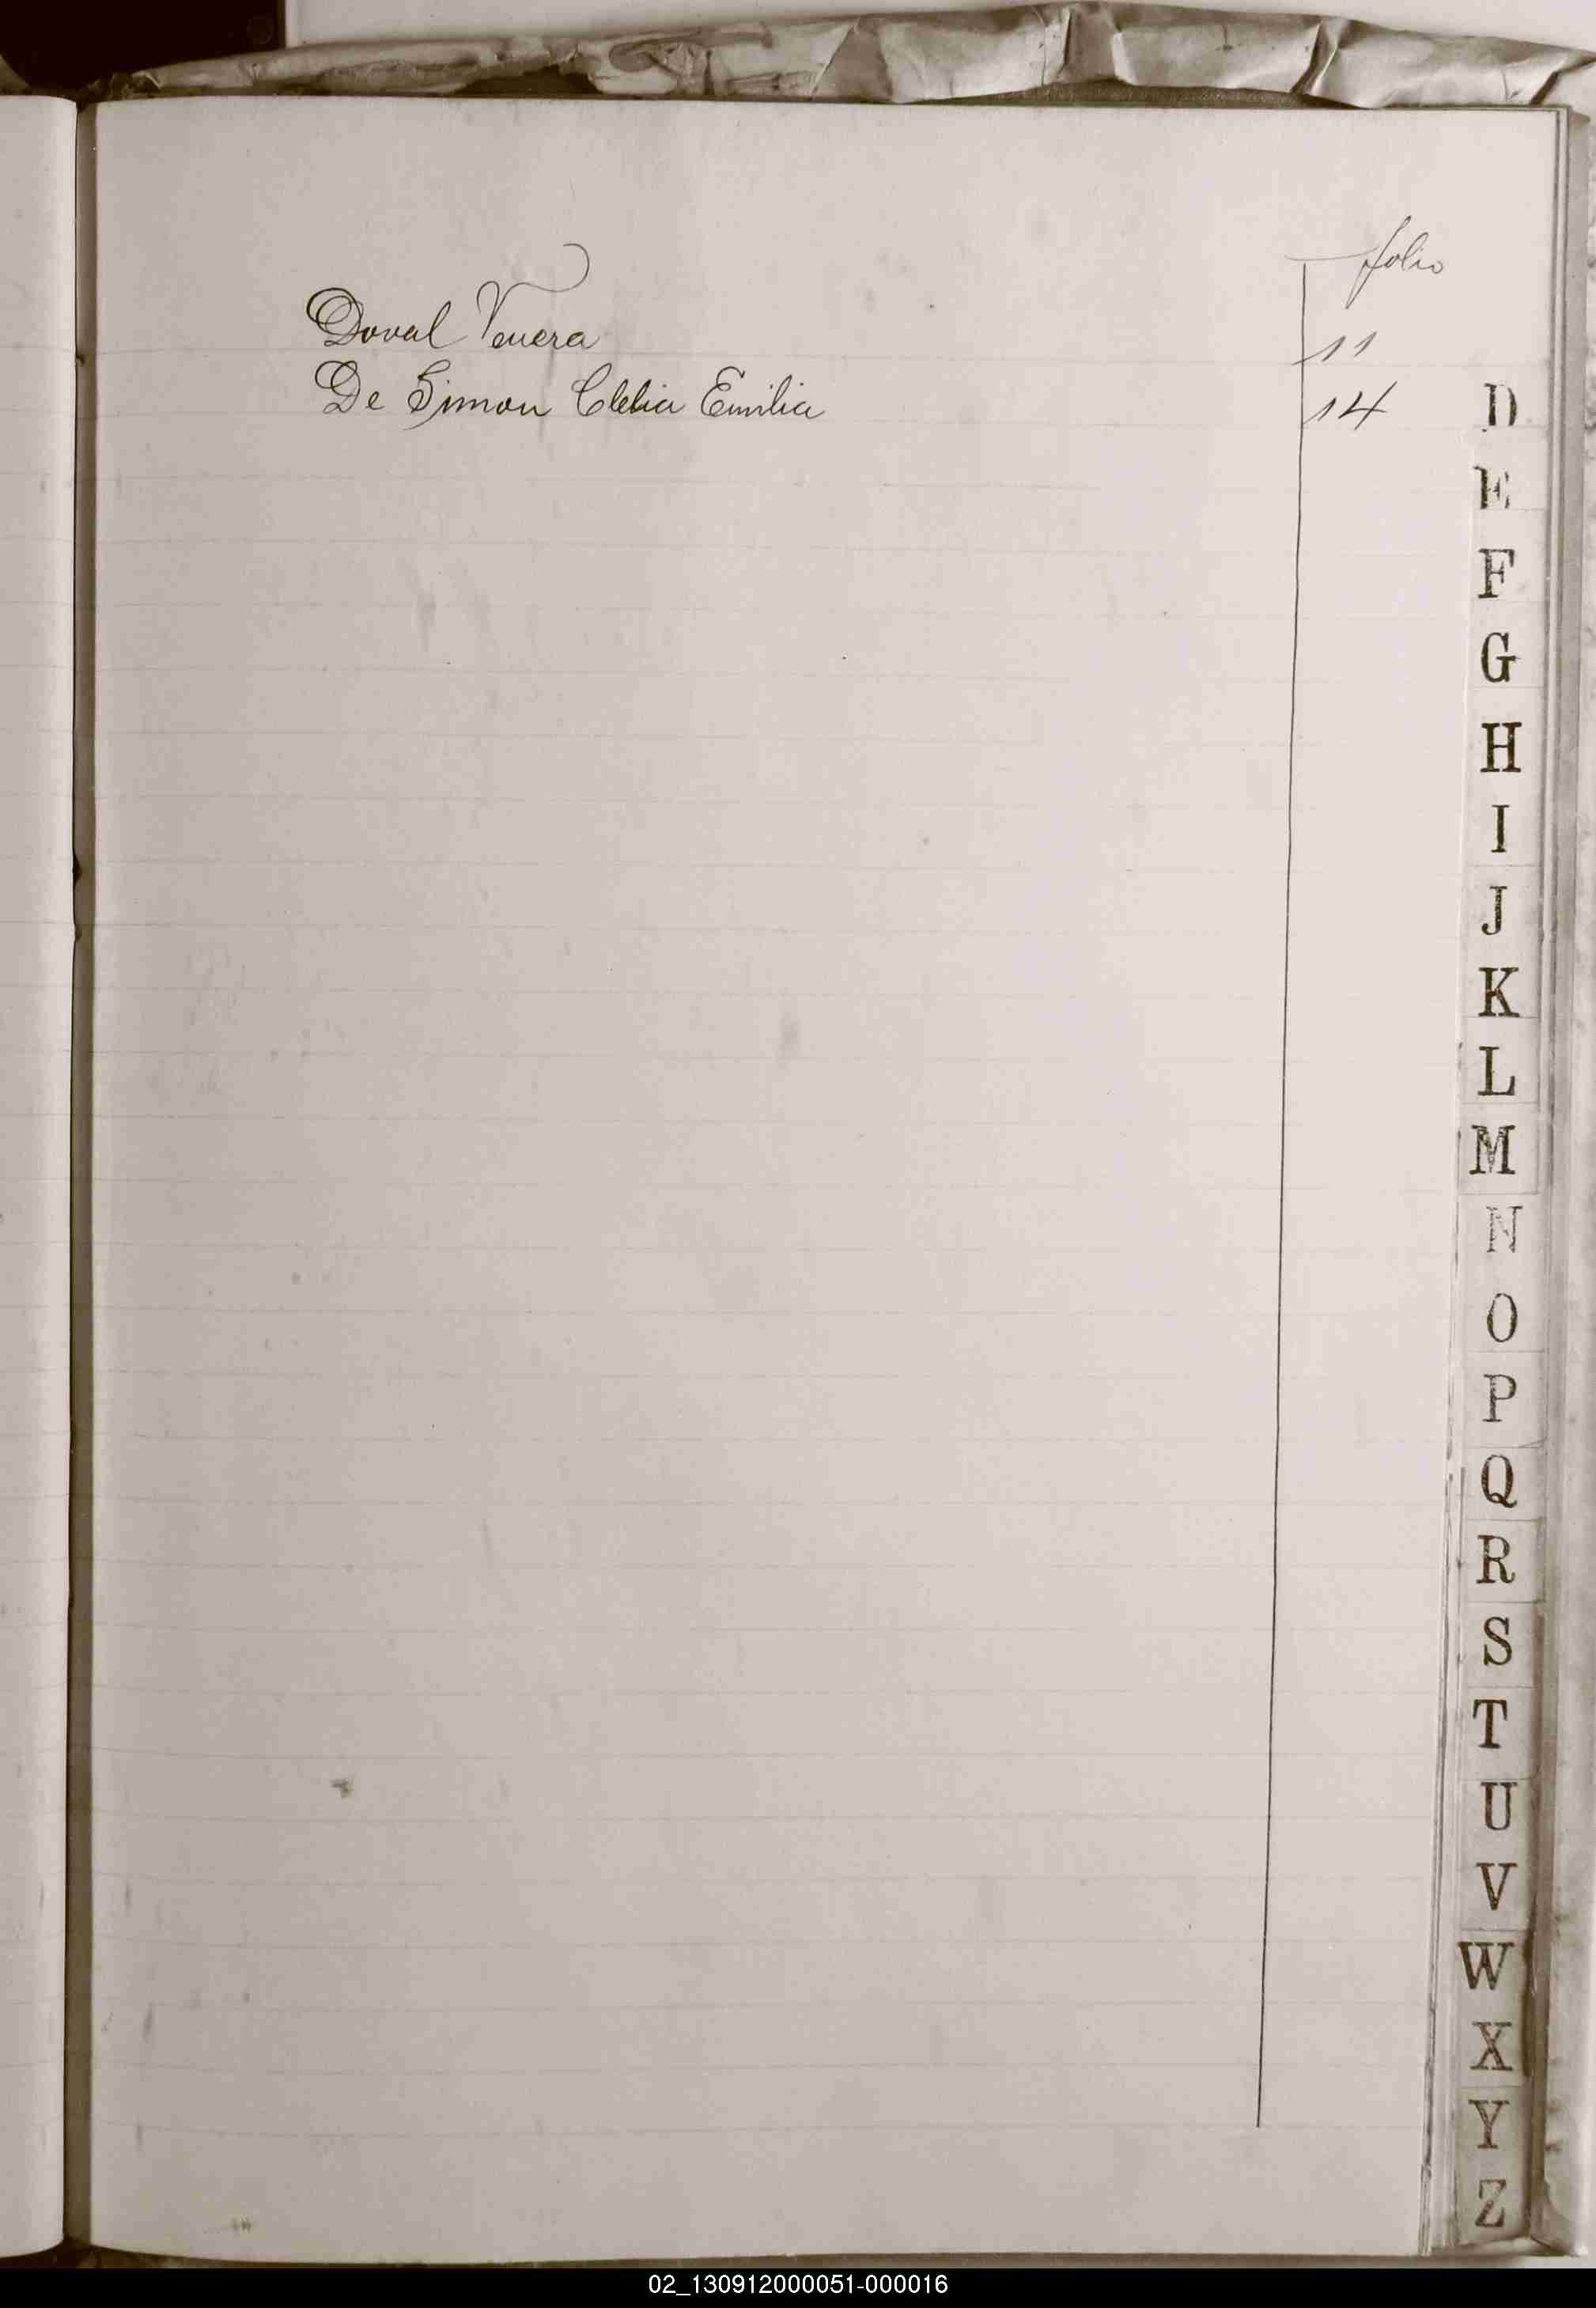 folio
Doval Venera 11
De Simon Clelia Emilia 14
D
E
F
G
H
I
J
K
L
M
N
O
P
Q
R
S
T
U
V
W
X
Y
Z
02_130912000051-000016